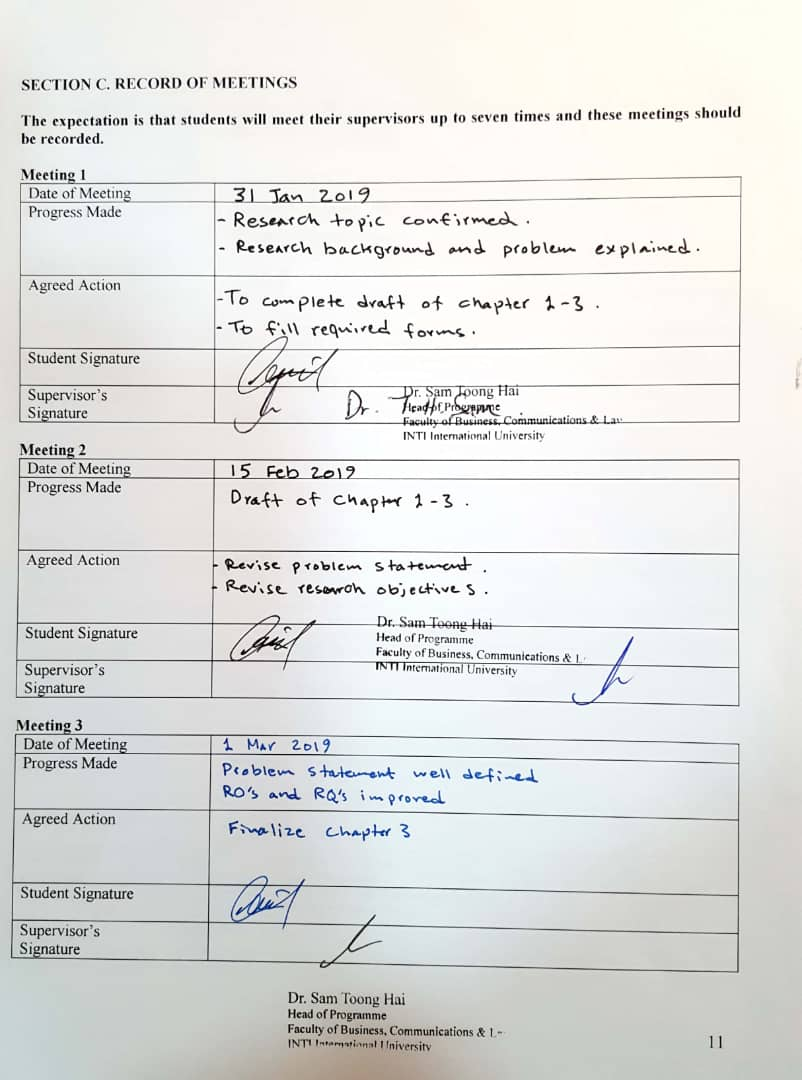 SECTION C. RECORD OF MEETINGS
The expectation is that students will meet their supervisors up to seven times and these meetings should
be recorded.
Meeting 1
Date of Meeting 31 Jan 2019
Progress Made - Research topic confirmed.
- Research background and problem explained.
Agreed Action
-To complete draft of chapter 1-3.
- To fill required forms.
Student Signature
Supervisor's
Signature
Dr.
Dr. Sam Toong Hai
Head of Programme
Faculty of Business, Communications & Law
INTI International University
Meeting 2
Date of Meeting 15 Feb 2019
Progress Made Draft of chapter 1-3.
Agreed Action - Revise problem statement.
- Revise research objectives.
Student Signature
Dr. Sam Toong Hai
Head of Programme
Faculty of Business, Communications & L
INTI International University
Supervisor's
Signature
Meeting 3
Date of Meeting 1 Mar 2019
Progress Made Problem statement well defined
RO's and RQ's improved
Agreed Action Finalize chapter 3
Student Signature
Supervisor's
Signature
Dr. Sam Toong Hai
Head of Programme
Faculty of Business, Communications & L
INTI International University
11